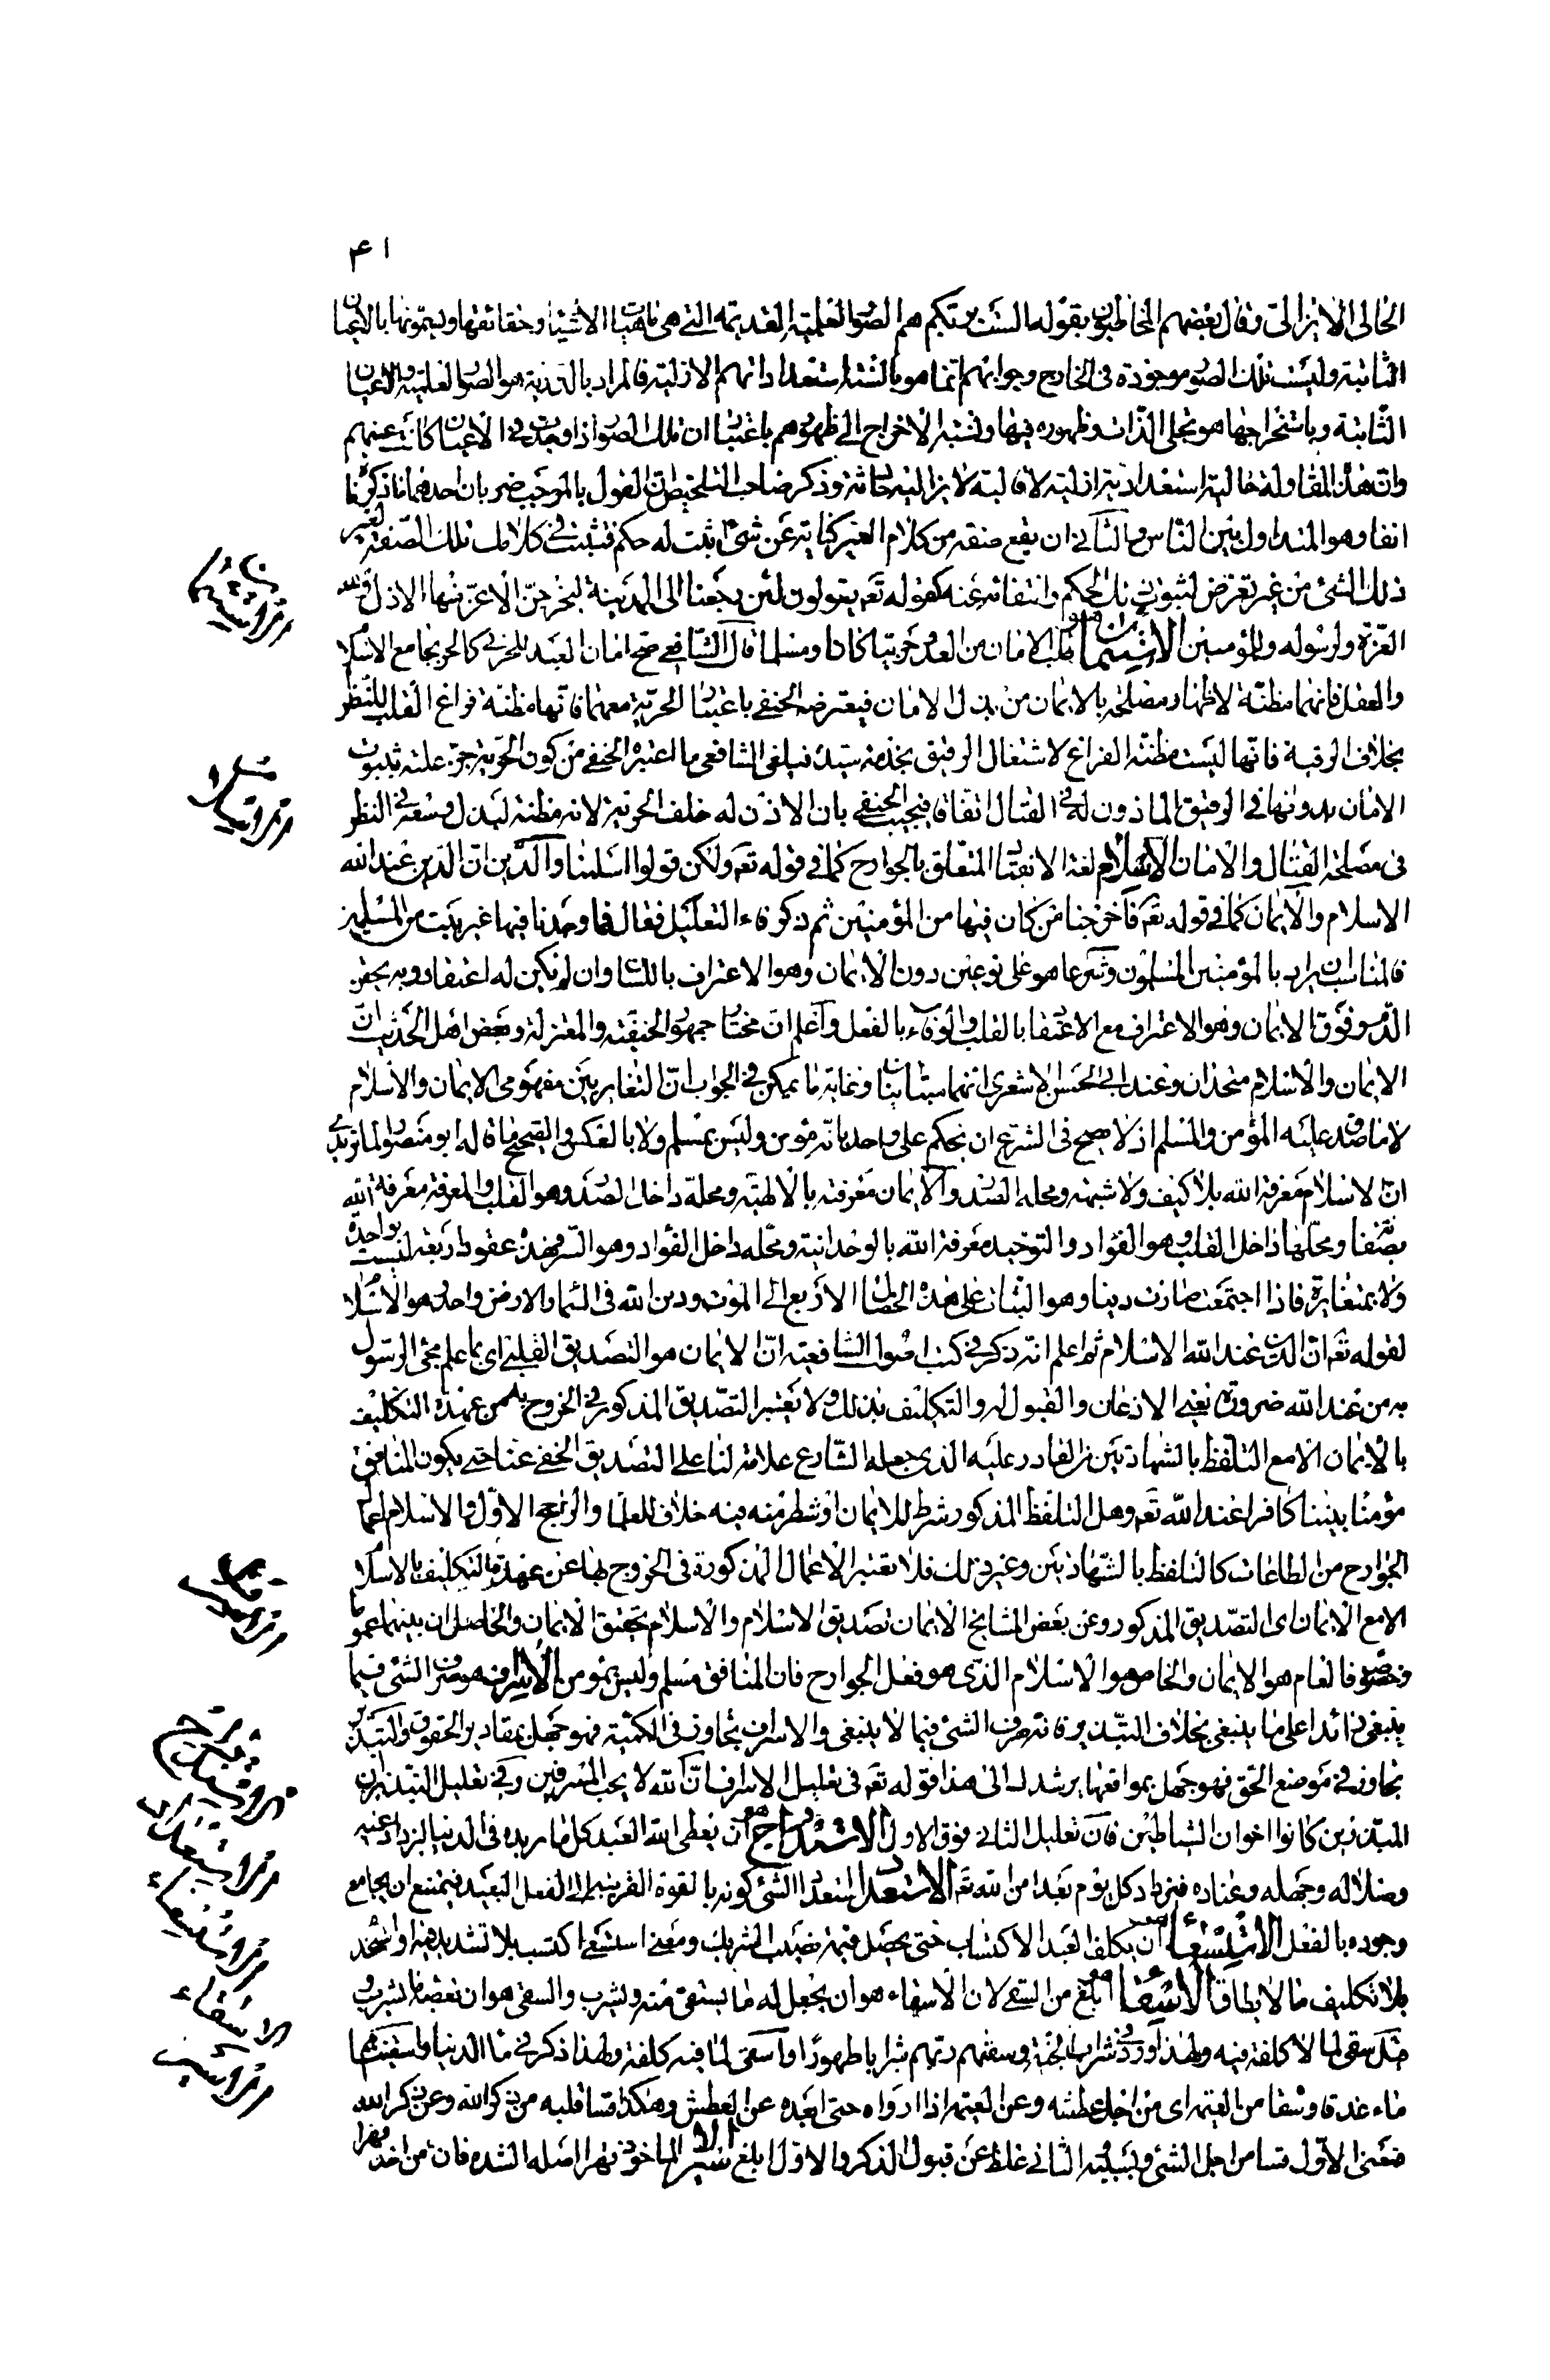 ٤١
الحالى اللايزالى وقال بعضهم المخاطبون بقوله الست بربكم هم الصور العلمية القديمة التى هى ماهيات الاشياء وحقائقها ويسمونها بالاعيان
الثابتة وليست تلك الصور موجودة فى الخارج وجوابهم انما هو بالسنة استعداداتهم الازلية فالمراد بالذرية هو الصور العلمية والاعيان
الثابتة وباستخراجها هو تجلى الذات وظهوره فيها ونسبة الاخراج الى ظهورهم باعتبار ان تلك الصور اذا وجدت فى الاعيان كانت عينهم
وان هذه المقاولة حالية استعدادية ازلية لا قالية لا يزالية حادثة وذكر صاحب التلخيص ان القول بالموجب ضربان احدهما ما ذكرنا
انفا وهو المتداول بين الناس والثانى ان يقع صفة من كلام الغير كناية عن شئ اثبت له حكم فتثبت فى كلامك تلك الصفة لغير
ذلك الشئ من غير تعرض لثبوت ذلك الحكم وانتفائه عنه كقوله تعه يقولون لئن رجعنا الى المدينة ليخرجن الاعز منها الاذل ولله
العزة ولرسوله وللمؤمنين الاستيمان هو طلب الامان من العدو حربيا كان او مسلما قال الشافعى صح امان العبد للحربى كالحر بجامع الاسلام
والعقل فانهما مظنة لاظهار مصلحة بالايمان من بذل الامان فيعترضه الحنفى باعتبار الحرية معهما فانها مظنة فراغ القلب للنظر
بخلاف الرقية فانها ليست مظنة الفراغ لاشتغال الرقيق بخدمة سيده فيلغى الشافعى ما اعتبره الحنفى من كون الحرية جزء علة بثبوت
الامان بدونها فى الرقيق الماذون له فى القتال اتفاقا فيجيب الحنفى بان الاذن له خلف الحرية لانه مظنة لبذل وسعه فى النظر
فى مصلحة القتال والامان الاسلام لغة الانقياد المتعلق بالجوارح كما فى قوله تعه ولكن قولوا اسلمنا والدين ان الدين عند الله
الاسلام والايمان كما فى قوله تعه فاخرجنا من كان فيها من المؤمنين ثم ذكر فاء التعليل فقال فما وجدنا فيها غير بيت من المسلمين
فالمناسب ان يراد بالمؤمنين المسلمون وشرعا هو على نوعين دون الايمان وهو الاعتراف باللسان وان لم يكن له اعتقاد وبه يحقن
الدم وفوق الايمان وهو الاعتراف مع الاعتقاد بالقلب والوفاء بالفعل واعلم ان مختار جمهور الحنفية والمعتزلة وبعض اهل الحديث ان
الايمان والاسلام متحدان وعند ابى الحسن الاشعرى انهما متباينان وغاية ما يمكن فى الجواب ان التغاير بين مفهومى الايمان والاسلام
لا ما صدق عليه المؤمن والمسلم اذ لا يصح فى الشرع ان يحكم على واحد بانه مؤمن وليس بمسلم ولا بالعكس والصحيح ما قاله ابو منصور الماتريدى
ان الاسلام معرفة الله بلا كيف ولا شبهة ومحله الصدر والايمان معرفته بالالهية ومحله داخل الصدر وهو القلب والمعرفة معرفة الله
بصفاته ومحلها داخل القلب وهو الفؤاد والتوحيد معرفة الله بالوحدانية ومحله داخل الفؤاد وهو السر فهذه عقود اربعة ليست بواحدة
ولا بمتغايرة فاذا اجتمعت صارت دينا وهو الثبات على هذه الخصال الاربع الى الموت ودين الله فى السماء والارض واحد وهو الاسلام
لقوله تعه ان الدين عند الله الاسلام ثم اعلم انه ذكر فى كتب اصول الشافعية ان الايمان هو التصديق القلبى اى بما علم مجئ الرسول
به من عند الله ضرورة يعنى الاذعان والقبول له والتكليف بذلك ولا يعتبر التصديق المذكور فى الخروج به من عهدة التكليف
بالايمان الا مع التلفظ بالشهادتين من القادر عليه الذى جعله الشارع علامة لنا على التصديق الخفى عنا حتى يكون المنافق
مؤمنا بيننا كافرا عند الله تعه وهل التلفظ المذكور شرط للايمان او شطر منه فيه خلاف للعلماء والراجح الاول والاسلام اعمال
الجوارح من الطاعات كالتلفظ بالشهادتين وغير ذلك فلا تعتبر الاعمال المذكورة فى الخروج بها عن عهدة التكليف بالاسلام
الا مع الايمان اى التصديق المذكور وعن بعض المشايخ الايمان تصديق الاسلام والاسلام تحقيق الايمان والحاصل ان بينهما عموما
وخصوصا فالعام هو الايمان والخاص هو الاسلام الذى هو فعل الجوارح فان المنافق مسلم وليس بمؤمن الاسراف هو صرف الشئ فيما
ينبغى زائدا على ما ينبغى بخلاف التبذير فانه صرف الشئ فيما لا ينبغى والاسراف تجاوز فى الكمية فهو جهل بمقادير الحقوق والتبذير
تجاوز فى موضع الحق فهو جهل بمواقعها يرشدك الى هذا قوله تعه فى تعليل الاسراف ان الله لا يحب المسرفين وفى تعليل التبذير ان
المبذرين كانوا اخوان الشياطين فان تعليل الثانى فوق الاول الاستدراج هو ان يعطى الله العبد كل ما يريده فى الدنيا ليزداد غيه
وضلاله وجهله وعناده فيزداد كل يوم بعدا من الله تعه الاستعداد استعداد الشئ كونه بالقوة القريبة الى الفعل البعيد فيمتنع ان يجامع
وجوده بالفعل الاستسعاء هو ان يكلف العبد الاكتساب حتى يحصل قيمة نصيب الشريك ومعنى استسعى اكتسب بلا تشديد فيه او استخدم
بلا تكليف ما لا يطاق الاسقاء هو ابلغ من السقى لان الاسقاء هو ان يجعل له ما يستقى منه ويشرب والسقى هو ان يعطيه ما يشرب
سقى لما لا كلفة فيه ولهذا ورد فى شراب الجنة وسقيهم ربهم شرابا طهورا واسقى لما فيه كلفة ولهذا ذكر فى ماء الدنيا
ماء غدقا وسقاه من العيمة اى من اجل عطشه وعن العيمة اذا ارواه حتى ابعده عن العطش وهكذا قسا قلبه من ذكر الله وعن ذكر الله
فمعنى الاول قسا من اجل الشئ وبسببه والثانى غلظ عن قبول الذكر والاول ابلغ الاسير الماخوذ قهرا اصله الشد فان من اخذ قهرا